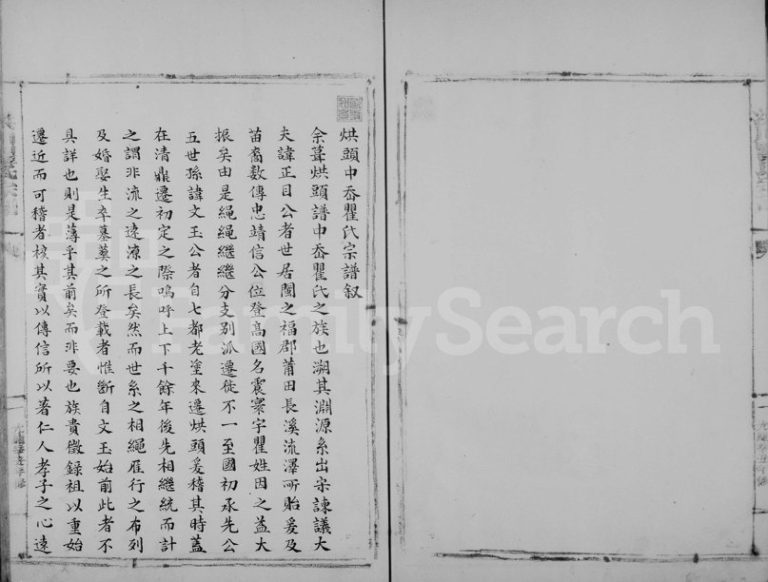 烘頭中岙瞿氏宗譜叙
余葺烘頭譜中岙瞿氏之族也溯其淵源系出宋諫議大
夫諱正目公者世居閩之福郡莆田長溪流澤所貽爰及
苗裔數傳忠靖信公位登高國名震寰宇瞿姓因之益大
振矣由是繩繩繼繼分支别派遷徙不一至國初承先公
五世孫諱文玉公者自七都老塗來遷烘頭爰稽其時蓋
在清鼎遷初定之際嗚呼上下千餘年後先相繼統而計
之謂非流之遠源之長矣然而世系之相繩雁行之布列
及婚娶生卒墓奠之所登載者惟斷自文玉始前此者不
具詳也則是薄乎其前矣而非要也族貴徵錄祖以重始
遷近而可稽者核其實以傳信所以著仁人孝子之心遠
FamilySearch